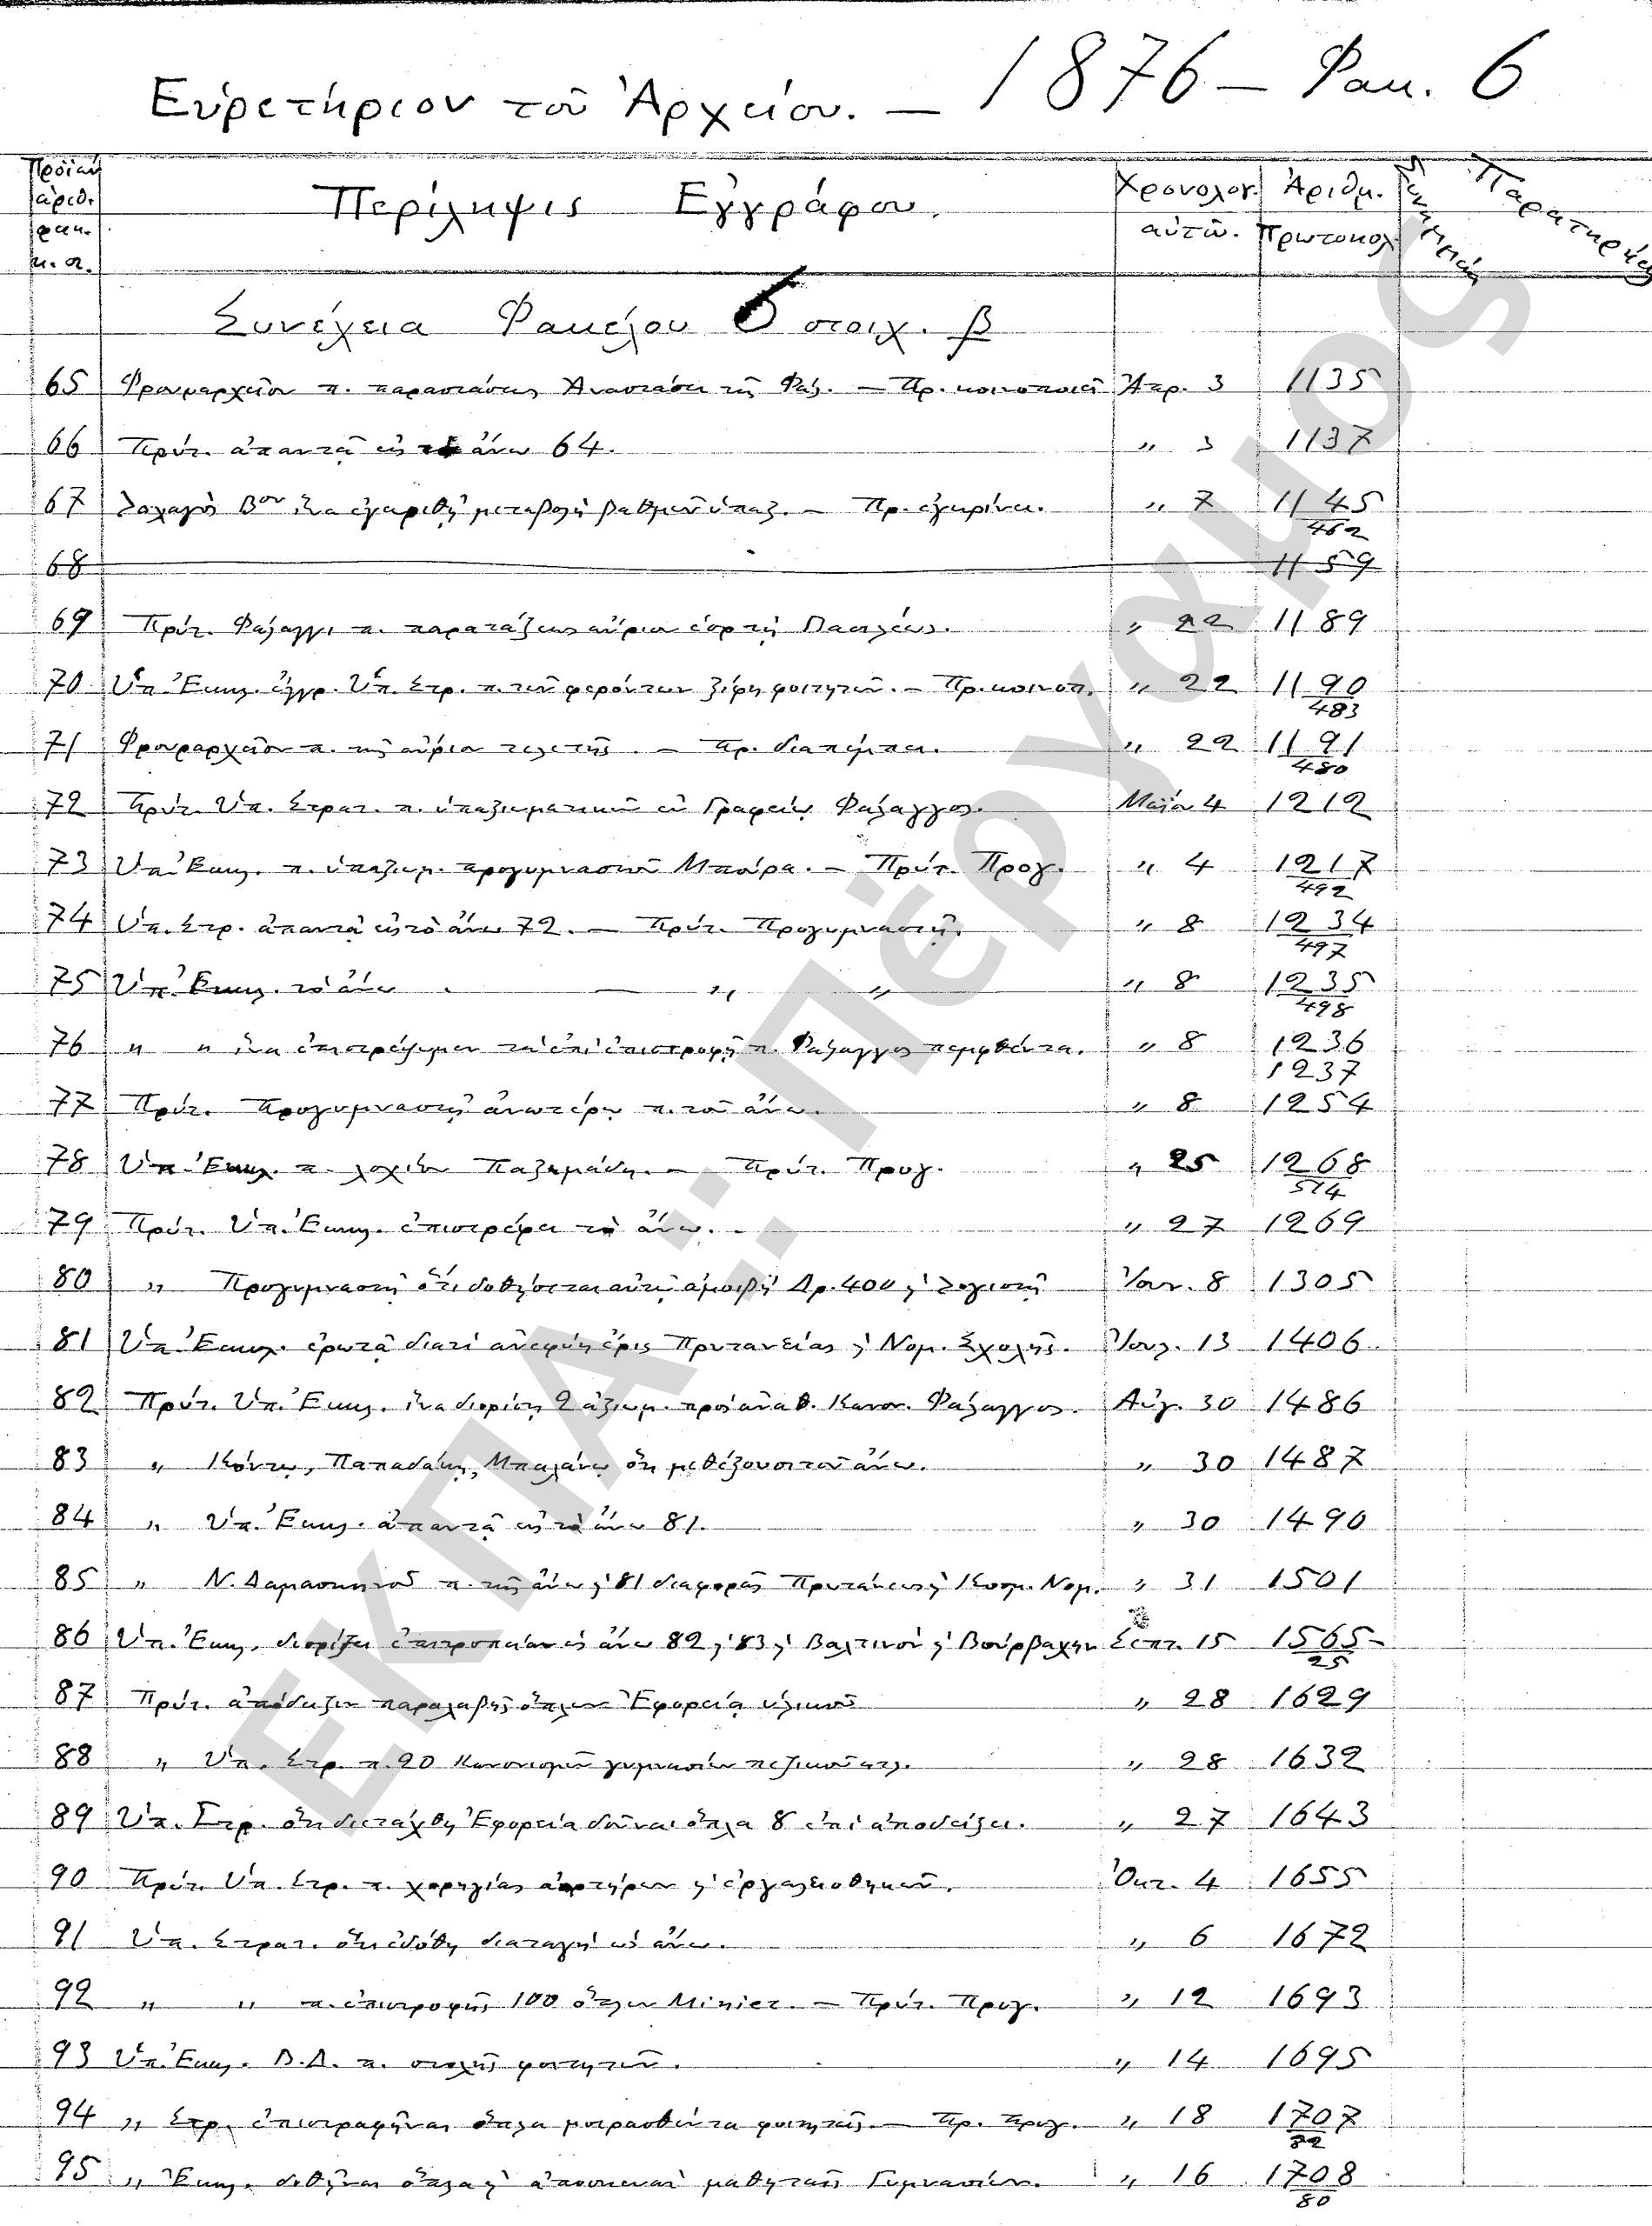 Εὑρετήριον τοῦ Ἀρχείου. — 1876 — Φακ. 6
ἀριθ.
φακ.
κ. α.
Περίληψις Ἐγγράφου.
Χρονολογ.
αὐτῶ.
Ἀριθμ.
Πρωτοκολ
Παρατηρήσ
Συνέχεια Φακέλου 6 στοιχ. β
65 Φρουραρχεῖον π. παραστάσεως Ἀναστάσει τῆς Φάλ. — Πρ. κοινοποιεῖ Ἀπρ. 3 1135
66 Πρύτ. ἀπαντᾷ εἰς τὸ ἄνω 64. „ 3 1137
67 Λοχαγὸς Βον ἵνα ἐγκριθῇ μεταβολὴ βαθμῶν ὑπαξ. — Πρ. ἐγκρίνει. „ 7 1145
452
68 1159
69 Πρύτ. Φάλαγγι π. παρατάξεως αὔριον ἑορτῇ Βασιλέως. „ 22 1189
70 Ὑπ. Ἐκκλ. ἔγγρ. Ὑπ. Στρ. π. τῶν φερόντων ξίφη φοιτητῶν. — Πρ. κοινοπ. „ 22 1190
483
71 Φρουραρχεῖον π. τῆς αὔριον τελετῆς. — Πρ. διαπέμπει. „ 22 1191
480
72 Πρύτ. Ὑπ. Στρατ. π. ὑπαξιωματικοῦ ἐν Γραφείῳ Φάλαγγος. Μαΐου 4 1212
73 Ὑπ. Ἐκκλ. π. ὑπαξιωμ. προγυμναστοῦ Μπούρα. — Πρύτ. Προγ. „ 4 1217
492
74 Ὑπ. Στρ. ἀπαντᾷ εἰς τὸ ἄνω 72. — Πρύτ. Προγυμναστῇ. „ 8 1234
497
75 Ὑπ. Ἐκκλ. τὸ ἄνω . — „ „ „ 8 1235
498
76 „ „ ἵνα ἐπιστρέψωμεν τὰ ἐπὶ ἐπιστροφῇ π. Φάλαγγος πεμφθέντα. „ 8 1236
1237
77 Πρύτ. Προγυμναστῇ ἀνωτέρῳ π. τοῦ ἄνω. „ 8 1254
78 Ὑπ. Ἐκκλ. π. λοχίου Παξιμάδη. — Πρύτ. Προγ. „ 25 1268
514
79 Πρύτ. Ὑπ. Ἐκκλ. ἐπιστρέφει τὸ ἄνω. „ 27 1269
80 „ Προγυμναστῇ ὅτι δοθήσεται αὐτῷ ἀμοιβὴ Δρ. 400 ϗ Λογιστῇ Ἰουν. 8 1305
81 Ὑπ. Ἐκκλ. ἐρωτᾷ διατὶ ἀνεφύη ἔρις Πρυτανείας ϗ Νομ. Σχολῆς. Ἰουλ. 13 1406
82 Πρύτ. Ὑπ. Ἐκκλ. ἵνα διορίσῃ 2 ἀξιωμ. πρὸς ἀναθ. Κανον. Φάλαγγος. Αὐγ. 30 1486
83 „ Κόντῳ, Παπαδάκῃ, Μπαλάνῳ ὅτι μεθέξουσι τοῦ ἄνω. „ 30 1487
84 „ Ὑπ. Ἐκκλ. ἀπαντᾷ εἰς τὸ ἄνω 81. „ 30 1490
85 „ Ν. Δαμασκηνοῦ π. τῆς ἄνω ϗ 81 διαφορᾶς Πρυτάνεως ϗ Κοσμ. Νομ. „ 31 1501
86 Ὑπ. Ἐκκλ. διορίζει ἐπιτροπείαν εἰς ἄνω 82 ϗ 83 ϗ Βαλτινὸν ϗ Βούρβαχην Σεπτ. 15 1565
25
87 Πρύτ. ἀπόδειξιν παραλαβῆς ὅπλων Ἐφορείᾳ ὑλικοῦ „ 28 1629
88 „ Ὑπ. Στρ. π. 20 Κανονισμῶν γυμνασίων πεζικοῦ κτλ. „ 28 1632
89 Ὑπ. Στρ. ὅτι διετάχθη Ἐφορεία δοῦναι ὅπλα 8 ἐπὶ ἀποδείξει. „ 27 1643
90 Πρύτ. Ὑπ. Στρ. π. χορηγίας ἀορτήρων ϗ ἐργαλειοθηκῶν. Ὀκτ. 4 1655
91 Ὑπ. Στρατ. ὅτι ἐδόθη διαταγὴ ὡς ἄνω. „ 6 1672
92 „ „ π. ἐπιστροφῆς 100 ὅπλων Miniez. — Πρύτ. Προγ. „ 12 1693
93 Ὑπ. Ἐκκλ. Β.Δ. π. στολῆς φοιτητῶν. „ 14 1695
94 „ Στρ. ἐπιστραφῆναι ὅπλα μοιρασθέντα φοιτηταῖς. — Πρ. Προγ. „ 18 1707
82
95 „ Ἐκκλ. δοθῆναι ὅπλα ϗ ἀποσκευαὶ μαθηταῖς Γυμνασίων. „ 16 1708
80
ΕΚΠΑ:. Πέργαμος